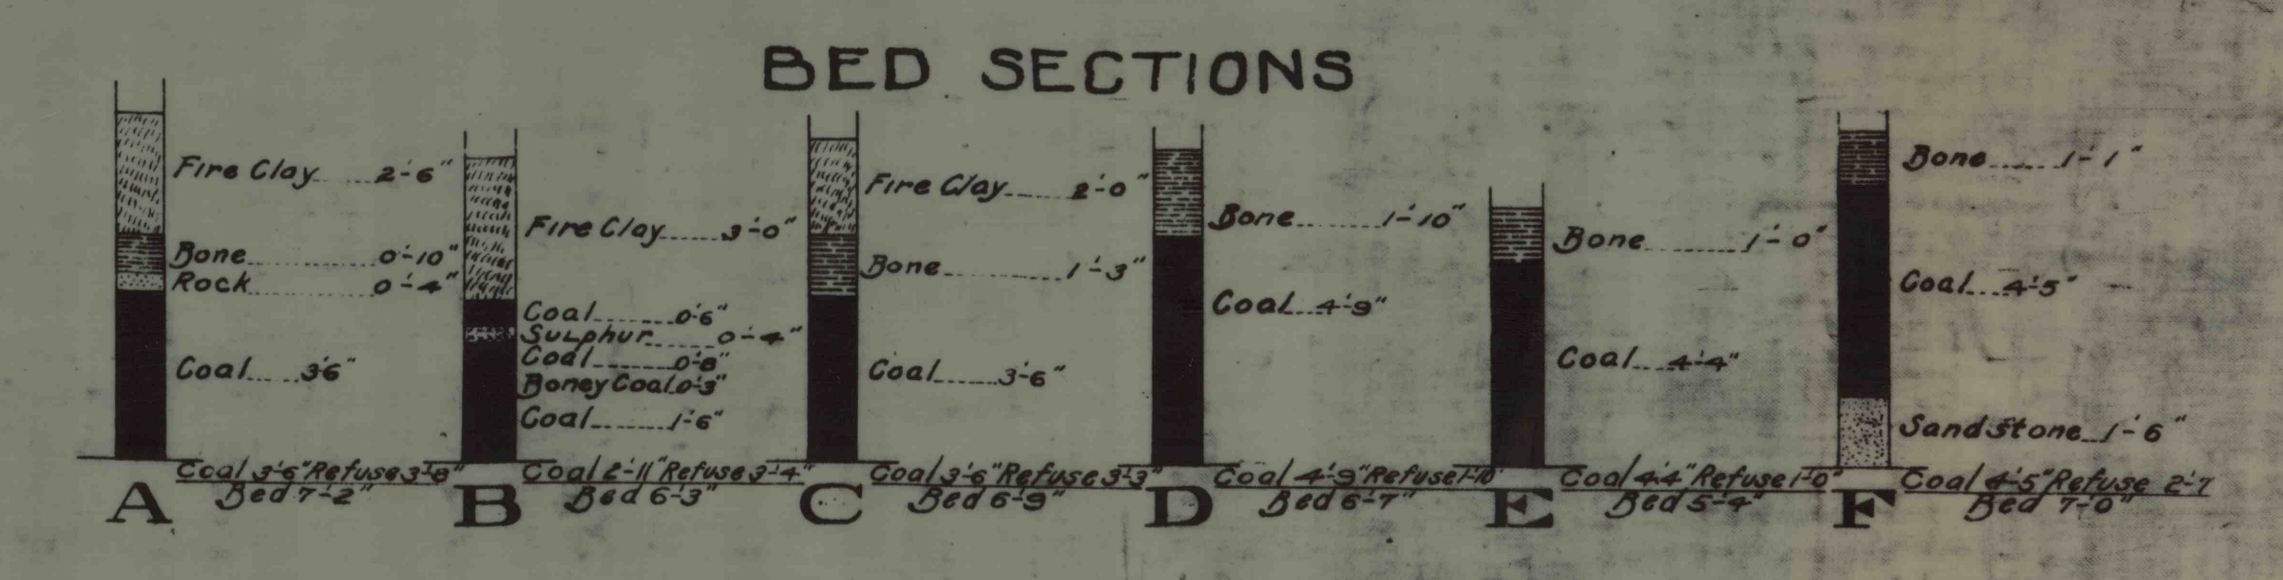 BED SECTIONS
Fire Clay 2'-6"
Bone 0'-10"
Rock 0'-4"
Coal 3'6"
Coal 3'-6" Refuse 3'-8"
Bed 7'-2"
A
Fire Clay 3'-0"
Coal 0'-6"
Sulphur 0'-4"
Coal 0'-8"
Boney Coal 0'-3"
Coal 1'-6"
Coal 2'-11" Refuse 3'-4"
Bed 6'-3"
B
Fire Clay 2'-0"
Bone 1'-3"
Coal 3'-6"
Coal 3'-6" Refuse 3'-3"
Bed 6'-9"
C
Bone 1'-10"
Coal 4'-9"
Coal 4'-9" Refuse 1'-10"
Bed 6'-7"
D
Bone 1'-0"
Coal 4'-4"
Coal 4'4" Refuse 1'-0"
Bed 5'-4"
E
Bone 1'-1"
Coal 4'-5"
Sandstone 1'-6"
Coal 4'-5" Refuse 2'-7
Bed 7'-0"
F